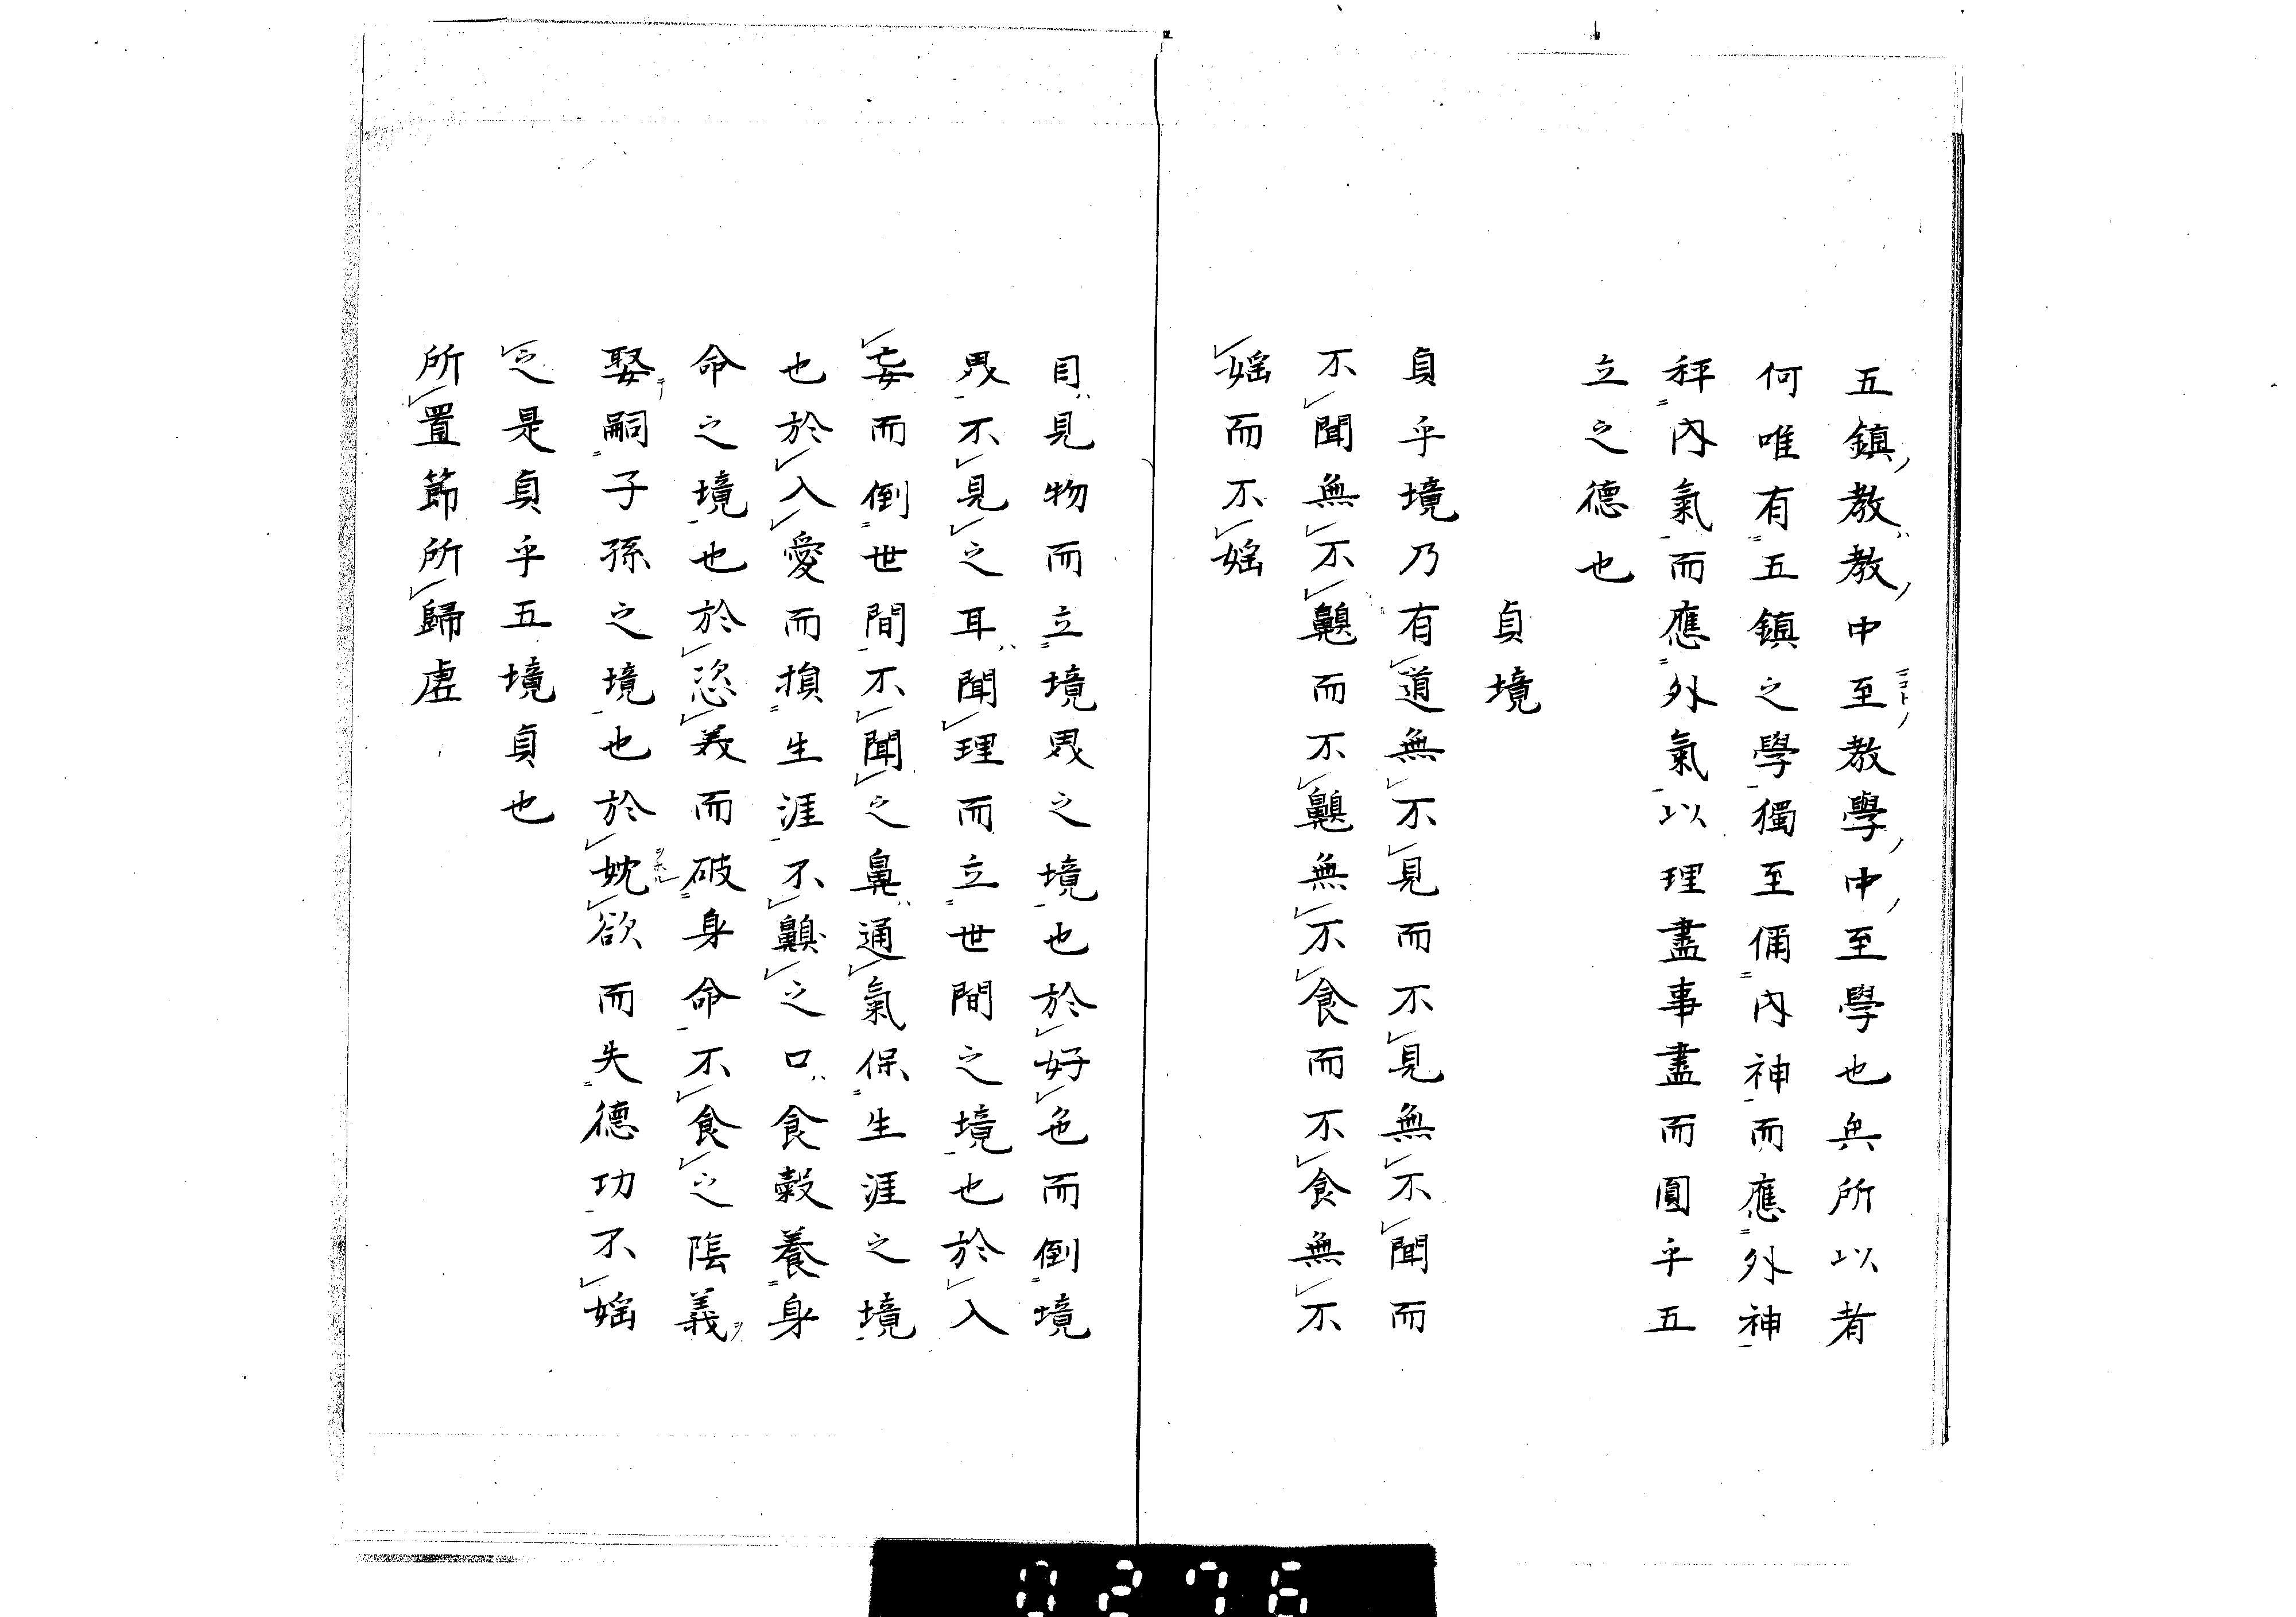 五鎮教教中至教學中至學也與所以者
何唯有五鎮之學獨至備內神而應外神
秤內氣而應外氣以理盡事盡而圓乎五
立之德也
貞境
貞乎境乃有道無不見而不見無不聞而
不聞無不齅而不齅無不食而不食無不
婬而不婬
目見物而立境界之境也於好色而倒境
界不見之耳聞理而立世間之境也於入
妄而倒世間不聞之鼻通氣保生涯之境
也於入愛而損生涯不齅之口食穀養身
命之境也於恣美而破身命不食之陰義
娶嗣子孫之境也於妉欲而失德功不婬
之是貞乎五境貞也
所置節所歸虛
0276